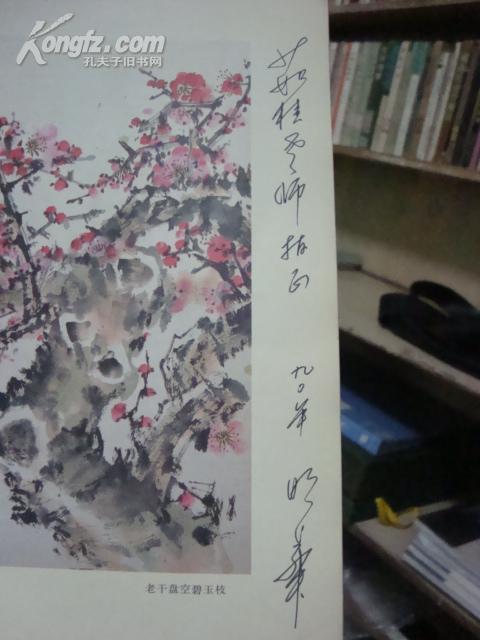 Kongfz.com
孔夫子旧书网
茹桂老师指正
九〇年 明華
老干盘空碧玉枝